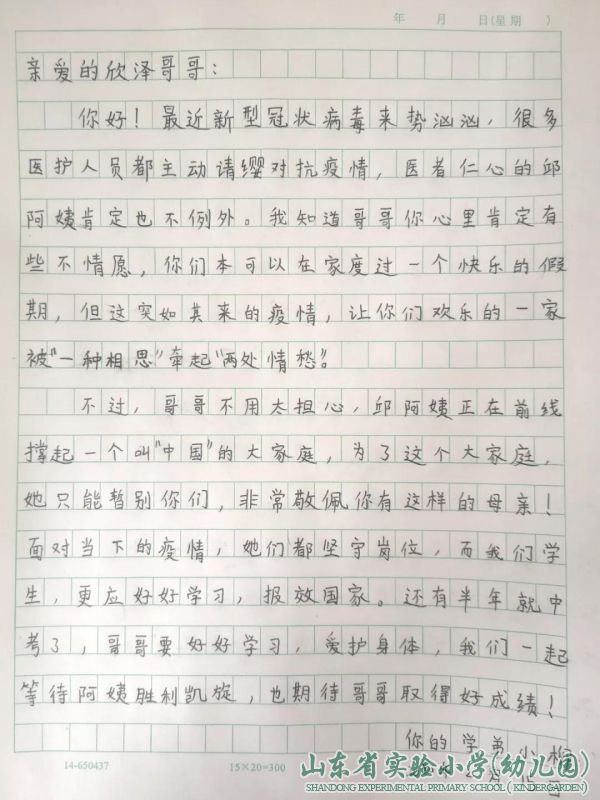 年 月 日(星期 )
亲爱的欣泽哥哥：
你好！最近新型冠状病毒来势汹汹，很多
医护人员都主动请缨对抗疫情，医者仁心的邱
阿姨肯定也不例外。我知道哥哥你心里肯定有
些不情愿，你们本可以在家度过一个快乐的假
期，但这突如其来的疫情，让你们欢乐的一家
被“一种相思”牵起“两处情愁”。
不过，哥哥不用太担心，邱阿姨正在前线
撑起一个叫“中国”的大家庭，为了这个大家庭，
她只能暂别你们，非常敬佩你有这样的母亲！
面对当下的疫情，她们都坚守岗位，而我们学
生，更应好好学习，报效国家。还有半年就中
考了，哥哥要好好学习，爱护身体，我们一起
等待阿姨胜利凯旋，也期待哥哥取得好成绩！
你的学弟小
14-650437
15×20=300
山东省实验小学(幼儿园)
SHANDONG EXPERIMENTAL PRIMARY SCHOOL ( KINDERGARDEN)